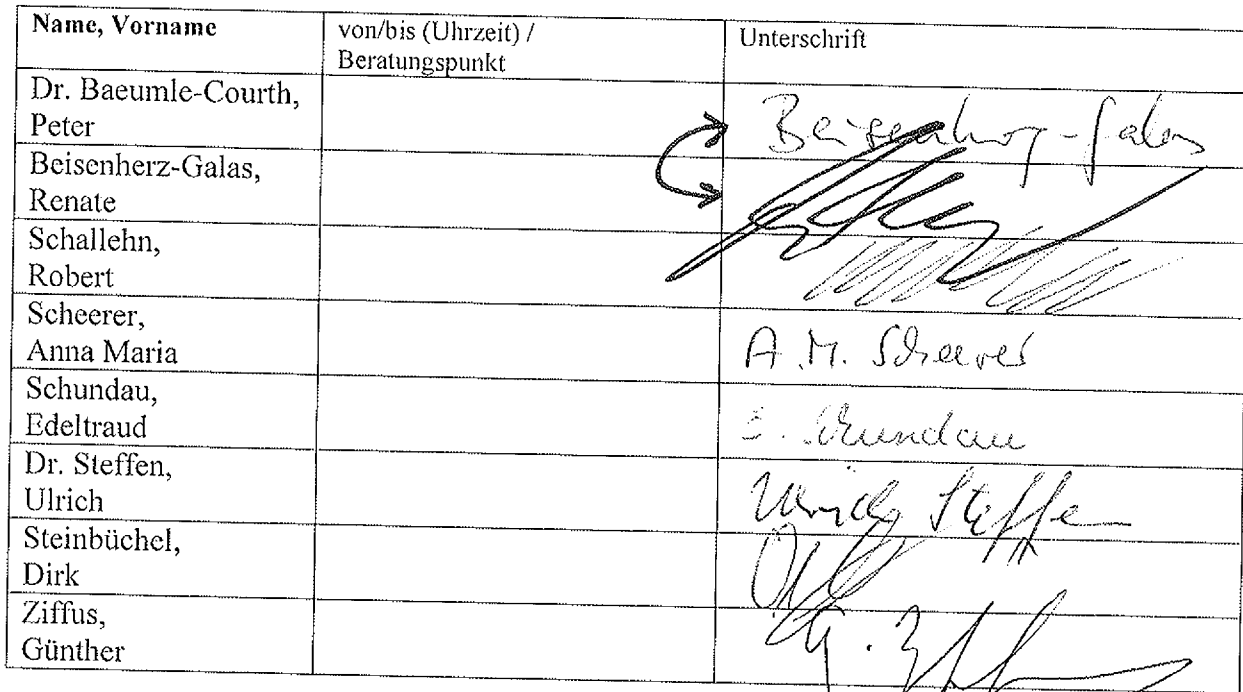 Name, Vorname
von/bis (Uhrzeit) /
Beratungspunkt
Unterschrift
Dr. Baeumle-Courth,
Peter
Beisenherz-Galas
Beisenherz-Galas,
Renate
Schallehn,
Robert
Scheerer,
Anna Maria
A. M. Scheerer
Schundau,
Edeltraud
E. Schundau
Dr. Steffen,
Ulrich
Ulrich Steffen
Steinbüchel,
Dirk
Ziffus,
Günther